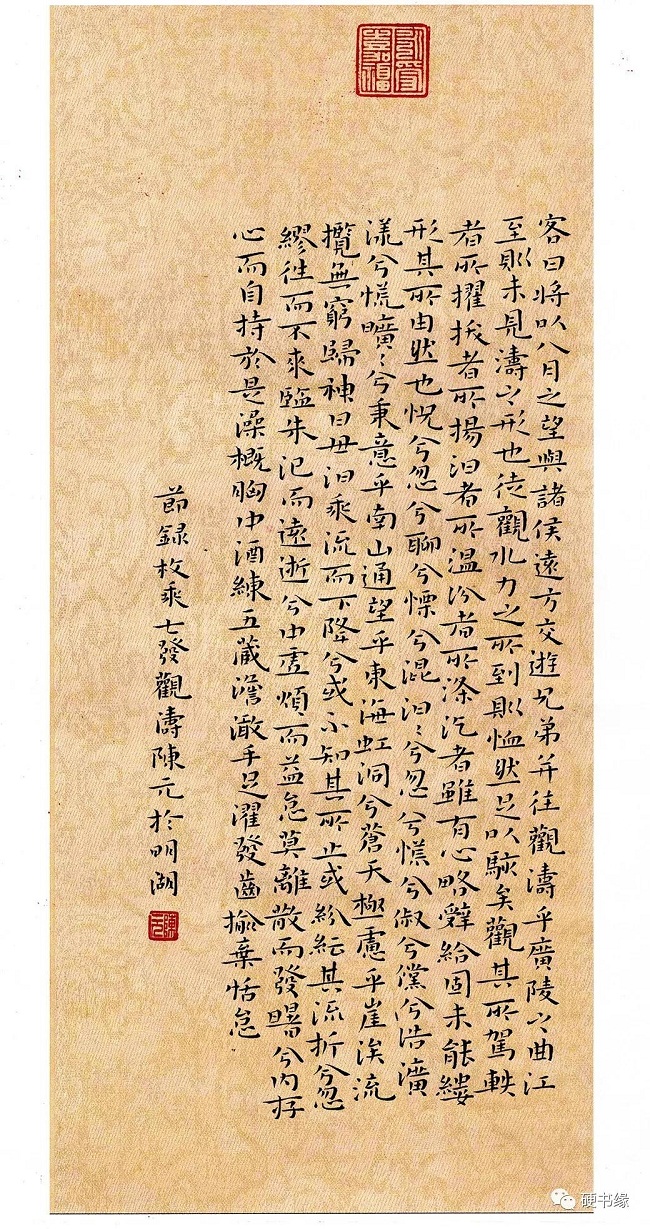 永受嘉福
客曰将以八月之望與諸侯遠方交遊兄弟并往觀濤乎廣陵之曲江
至則未見濤之形也徒觀水力之所到則恤然足以駭矣觀其所駕軼
者所擢拔者所揚汩者所温汾者所滌汔者雖有心略辭給固未能縷
形其所由然也怳兮忽兮聊兮慄兮混汩〻兮忽兮慌兮俶兮儻兮浩瀇
瀁兮慌曠〻兮秉意乎南山通望乎東海虹洞兮蒼天極慮乎崖涘流
攬無窮歸神日母汩乘流而下降兮或不知其所止或紛紜其流折兮忽
繆往而不來臨朱汜而遠逝兮中虚煩而益怠莫離散而發曙兮内存
心而自持於是澡概胸中洒練五藏澹澉手足濯發齒揄棄恬怠
節録枚乘七發觀濤陳元於明湖
陳元
硬书缘